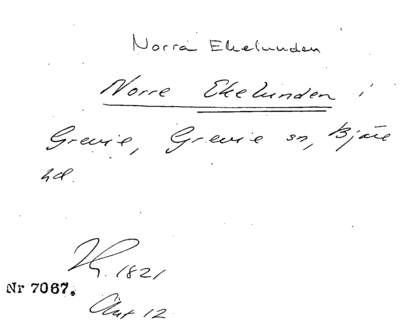 Norra Ekelunden
Norre Ekelunden i
Grevie, Grevie sn, Bjäre
hd.
1821
Nr 7067.
Akt 12